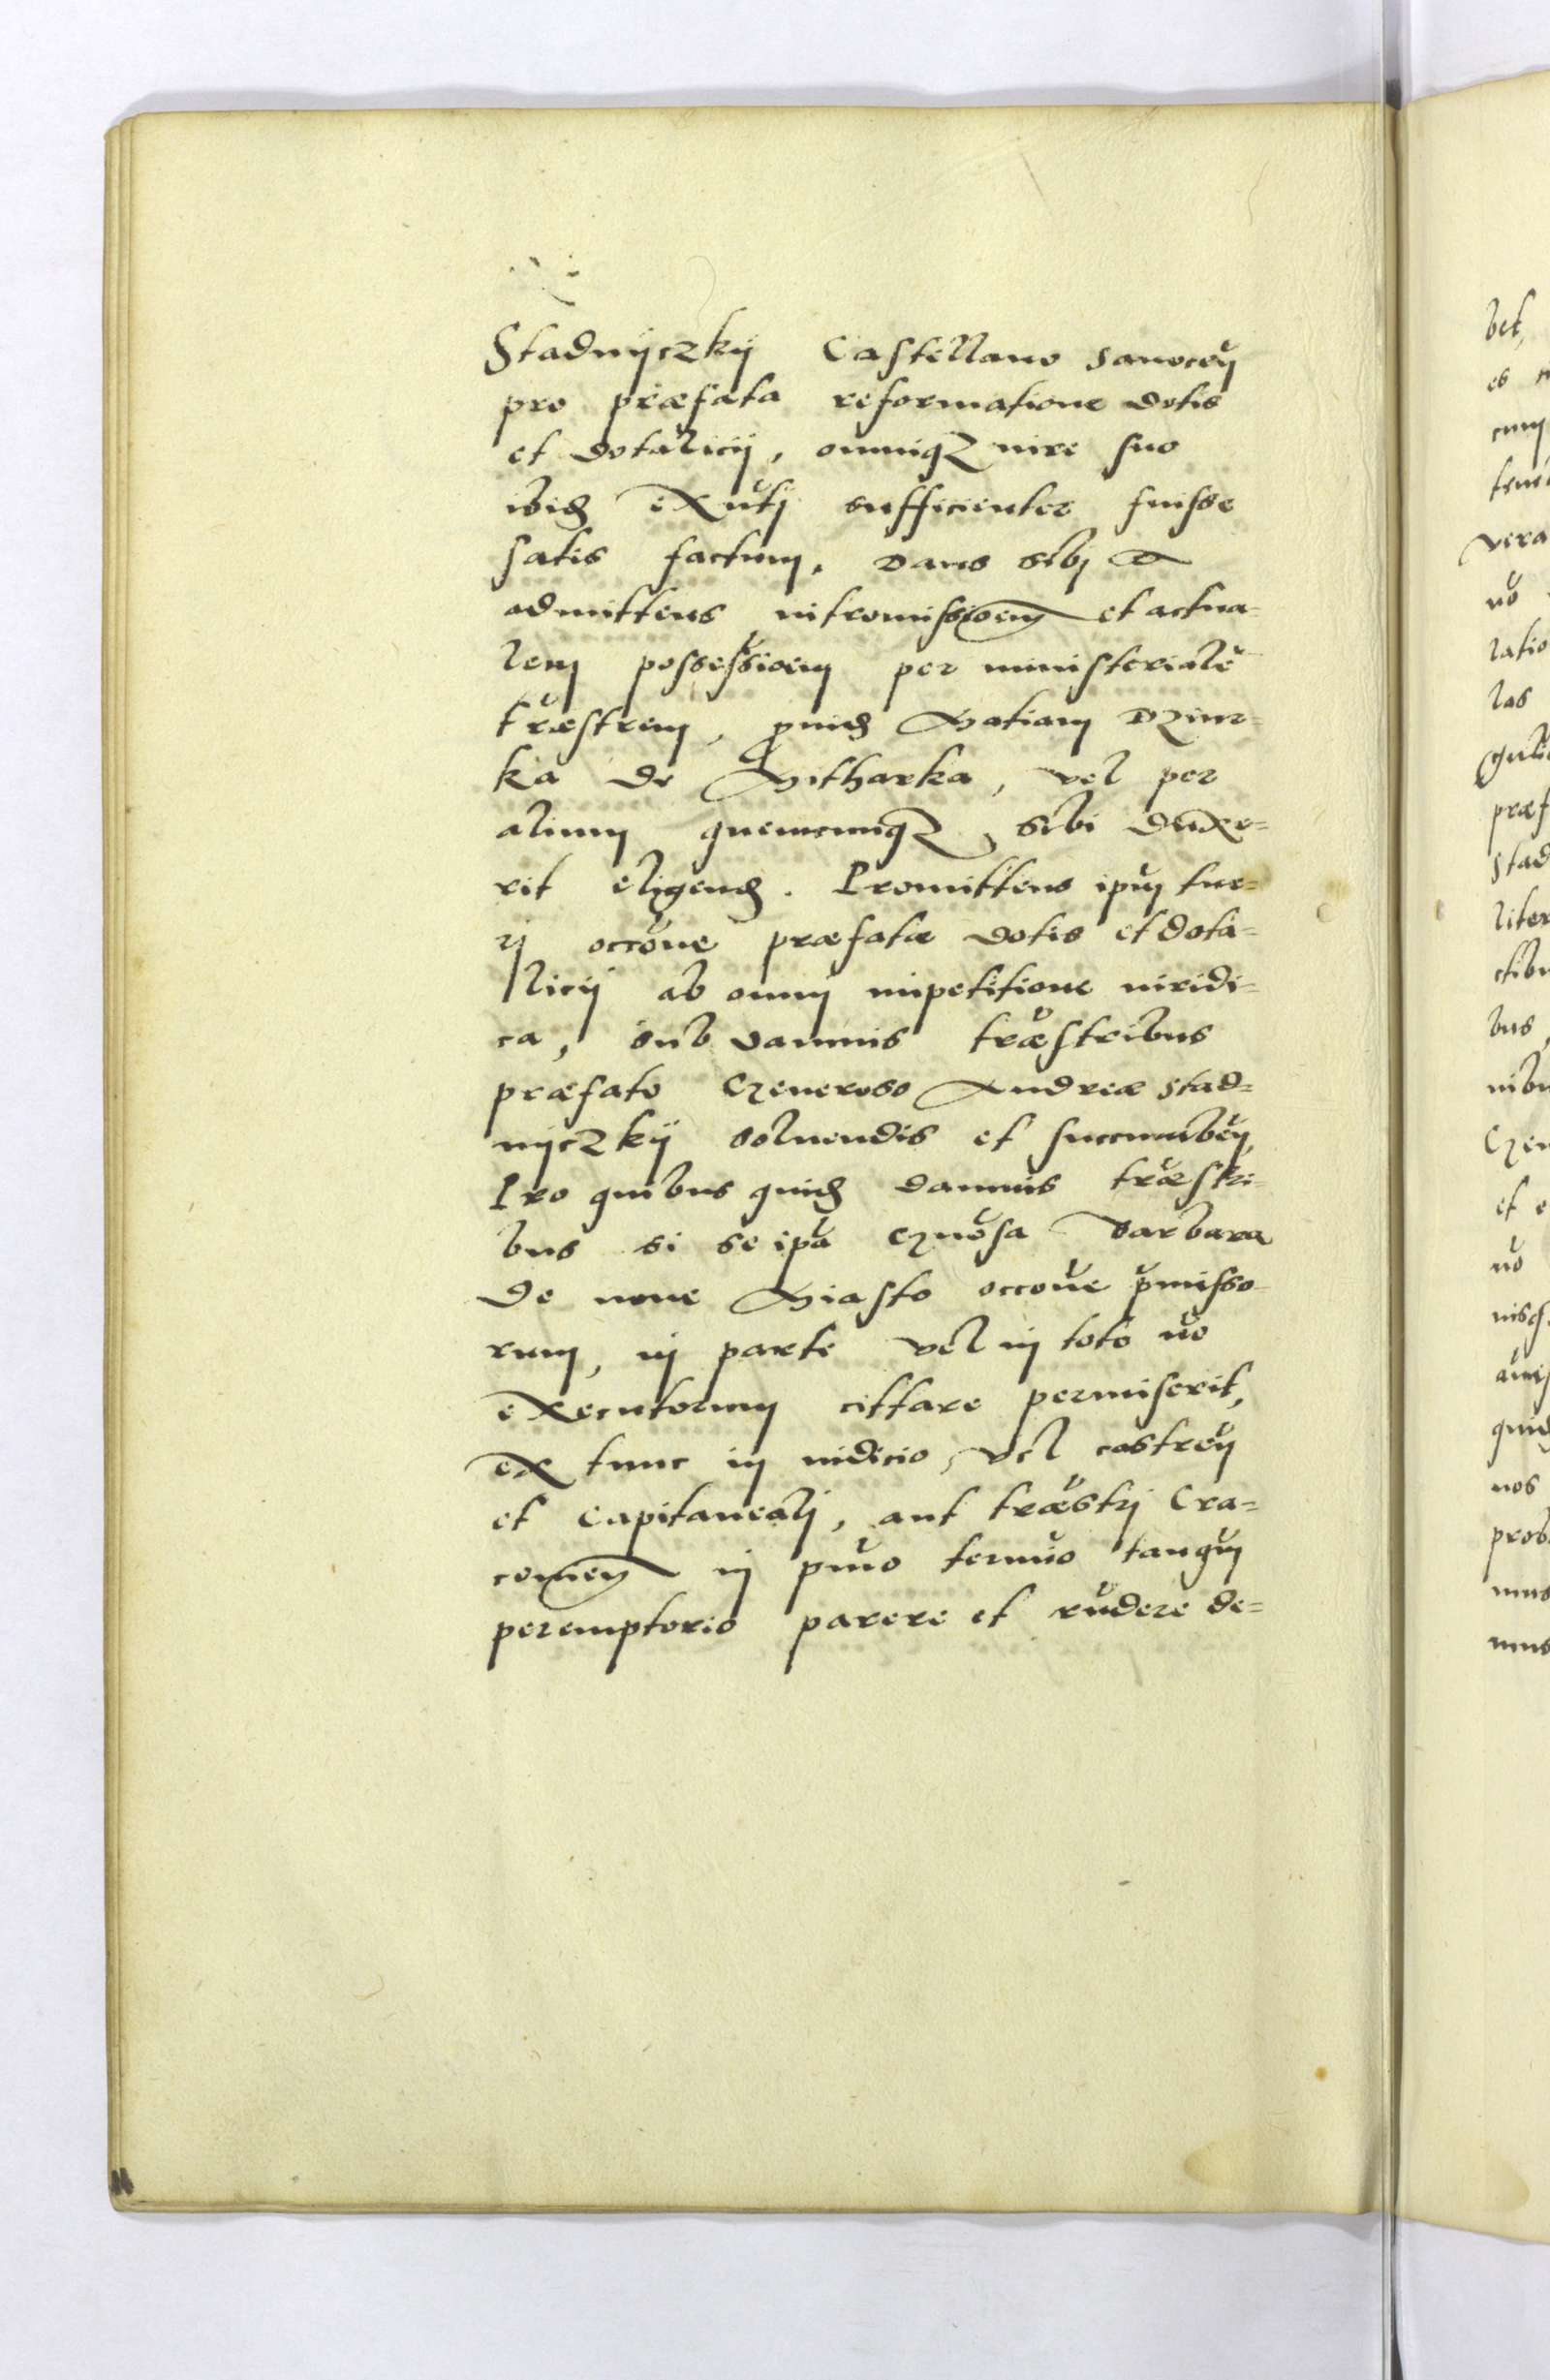 Stadnyczkij Castellano Sanoceñ
pro præfata reformatione dotis
et dotalicij, omniq3 iure suo
ibid exutj sufficienter fuisse
satis factum, Dans sibj &
admittens intromissioem et actua-
lem possessioem per ministerialē
træstrem, ꝓuid Matiam Dziur-
ka de Mitharka, vel per
alium quemcunq3 sibi duxe-
rit eligend. Promittens ipm tue-
rj occone præfatæ dotis et dota-
licij ab omnj impetitione iuridi-
ca, sub damnis træstribus
præfato Generoso Andreæ Stad-
nyczkij soluendis et succumbeñ
Pro quibus quid damnis træstri-
bus si se ipa Gnosa Barbara
de noue Miasto occone pmisso-
rum, in parte vel in toto no
executorum cittare permiserit,
ex tunc in iudicio, vel castreñ
et capitanealj, aut træstrj Cra-
couieñ in pmo termio tanqm
peremptorio parere et rñdere de-
bet,
es
cum
vera
no
ratio
las
præf
Stad
liter
ctibu
bus,
nibu
Gen
et e
no
quid
nos
prob
mus
mus